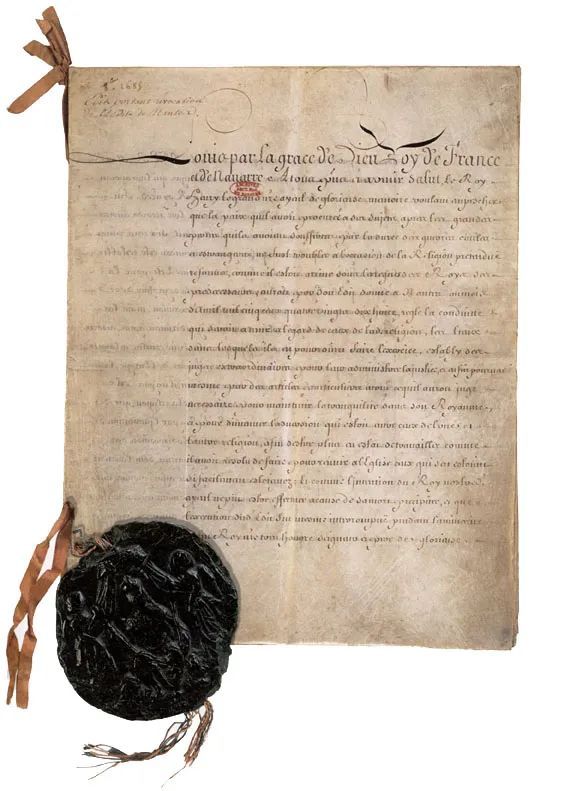 8bre 1685
Edit portant revocation
de l'edit de Nantes.
Louis par la grace de Dieu Roy de France
et de Navarre A tous presens et a venir Salut, le Roy
Henry le grand nre ayeul de glorieuse memoire voulant empescher
que la paix qu'il avoit procurée a ses sujets, apres les grandes
pertes qu'ils avoient souffertes par la durée des guerres civiles
et estrangeres, ne fust troublée a l'occasion de la Religion pretendue
reformée, comme il estoit arrivé sous les regnes des Roys ses
predecesseurs, auroit par son Edit donné a Nantes au mois
d'avril mil cinq cens quatre vingts dix huict, reglé la conduitte
qui seroit a tenir a l'egard de ceux de lad. religion, les lieux
dans lesquels ils en pourroient faire l'exercice, estably des
juges extraordinaires pour leur administrer la justice, et enfin pourveu
mesme par des articles particuliers a tout ce qu'il auroit jugé
necessaire pour maintenir la tranquilité dans son Royaume,
et pour diminuer l'aversion qui estoit entre ceux de l'une et
l'autre religion, afin d'estre plus en estat de travailler comme
il avoit resolu de faire pour reunir a l'Eglise ceux qui s'en estoient
si facilement esloignez; Et comme l'intention du Roy nostred.
ayeul ne put estre effectuée a cause de sa mort precipitée, et que
l'execution dud. Edit fut mesme interrompue pendant la minorité
du feu Roy nre tres honoré seigneur et pere de glorieuse